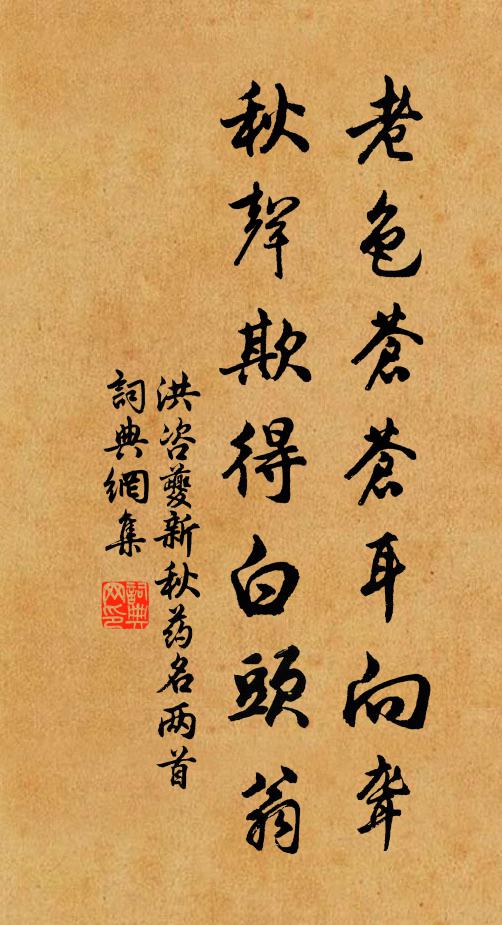 老色蒼蒼耳向聾
秋聲欺得白頭翁
洪咨夔新秋药名两首
詞典網集
詞典网印